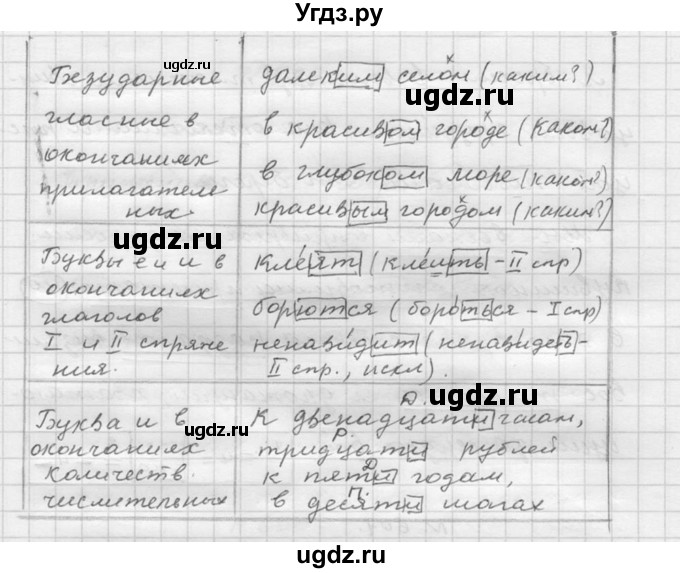 Угдз.ру
Безударные
гласные в
окончаниях
прилагатель
ных.
далеким селом (каким?)
в красивом городе (каком?)
в глубоком море (каком?)
красивым городом (каким?)
Буквы е и и в
окончаниях
глаголов
I и II спряже
ния.
клеят (клеить – II спр)
борются (бороться – I спр)
ненавидит (ненавидеть –
II спр., искл).
Буква и в
окончаниях
количеств.
числительных
Д.
К двенадцати часам,
Р
тридцати рублей
Д
к пяти годам,
П
в десяти шагах
ugdz.ru
ugdz.ru
ugdz.ru
ugdz.ru
ugdz.ru
ugdz.ru
ugdz.ru
ugdz.ru